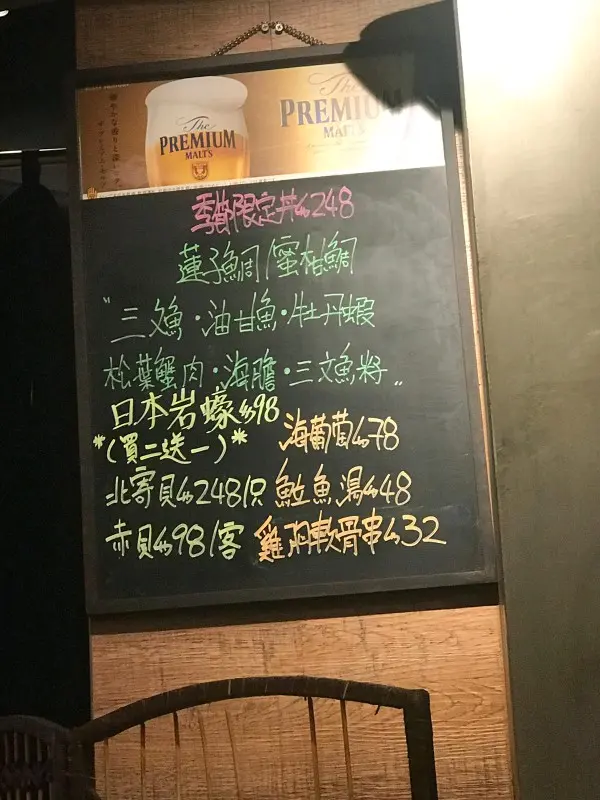 The
PREMIUM
MALT'S
The
PREMIUM
MALT'S
季節限定丼$248
蓮子鯛/蜜柑鯛
"三文魚·油甘魚·牡丹蝦
松葉蟹肉·海膽·三文魚籽"
日本岩蠔$98
*(買二送一)*
海葡萄$78
北寄貝$248/只 魚湯$48
赤貝$98/客 雞軟骨串$32